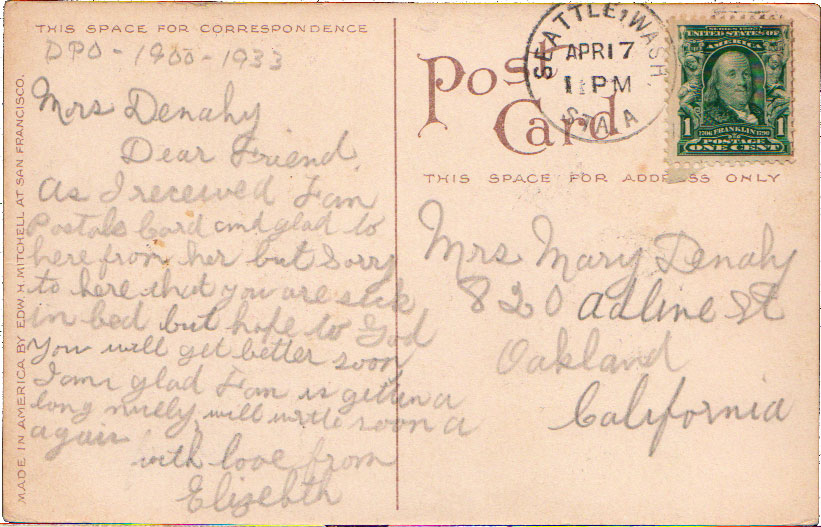 THIS SPACE FOR CORRESPONDENCE
DPO - 1900 - 1933
Mrs Denahy
Dear Friend
As I received Fan
Postals Card and glad to
here from her but Sorry
to here that you are sick
in bed but hope to God
You will get better soon
I am glad Fan is gettin a
long nicely, will write soon a
again
with love from
Elizebth
MADE IN AMERICA BY EDW. H. MITCHELL AT SAN FRANCISCO.
Post
Card
SEATTLE, WASH.
APR 17
11 PM
STA. A
SERIES 1902
UNITED STATES OF
AMERICA
1706 FRANKLIN 1790
1 POSTAGE 1
ONE CENT
THIS SPACE FOR ADDRESS ONLY
Mrs Mary Denahy
820 Adline St
Oakland
California